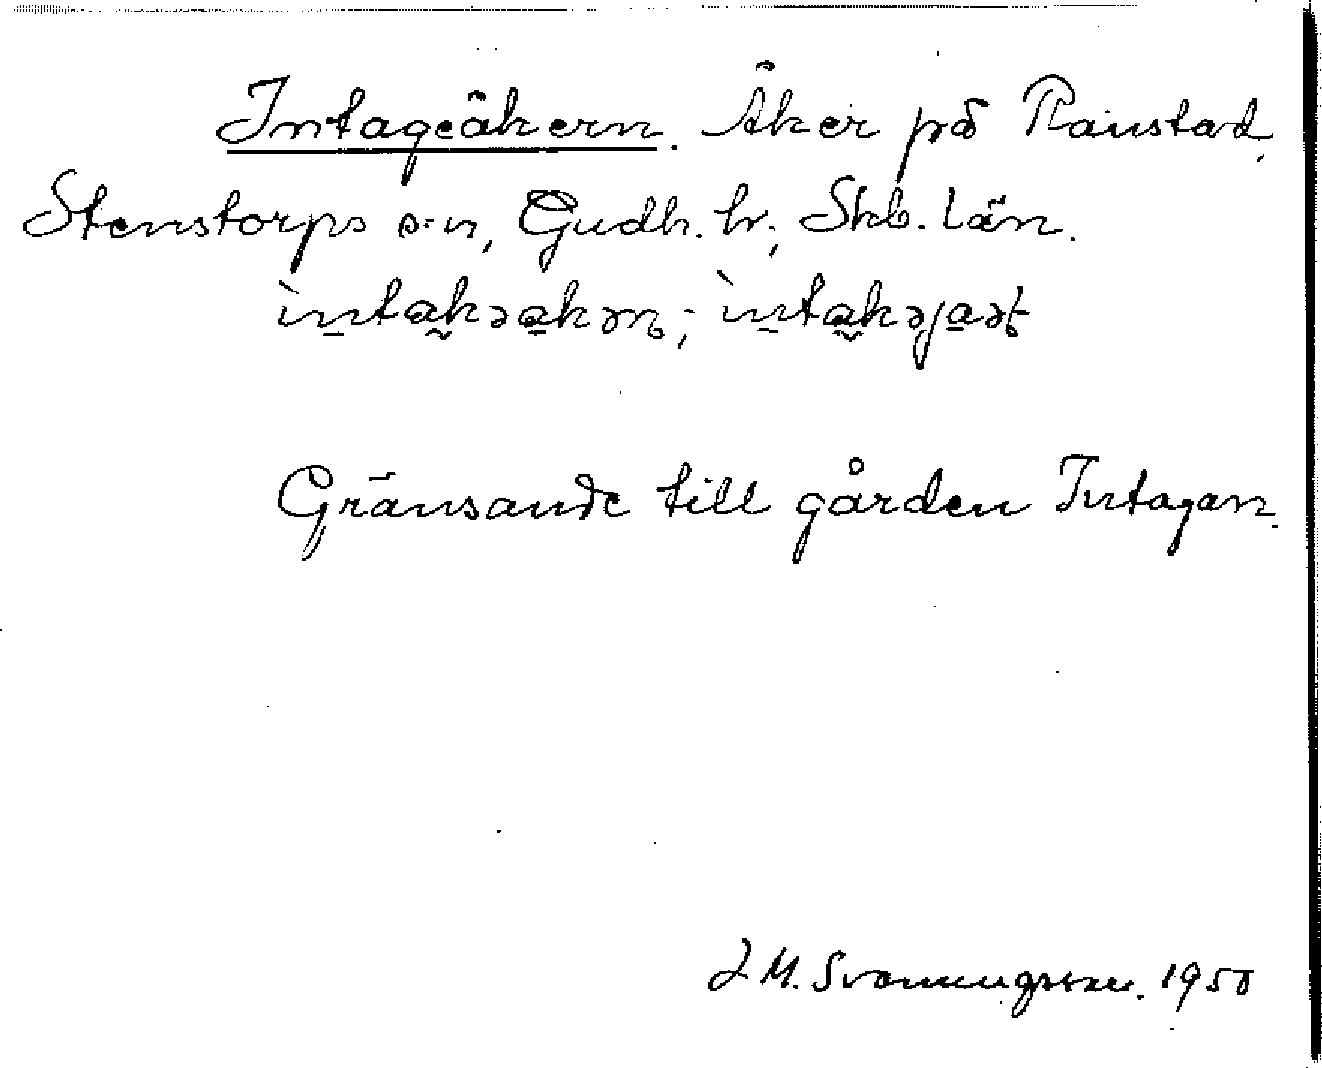 Intageåkern. Åker på Ranstad,
Stenstorps s:n, Gudh. hr, Skb. län.
ìntakəakən; ìntakəjaət
Gränsande till gården Intagan.
J. M. Svanungsson. 1950